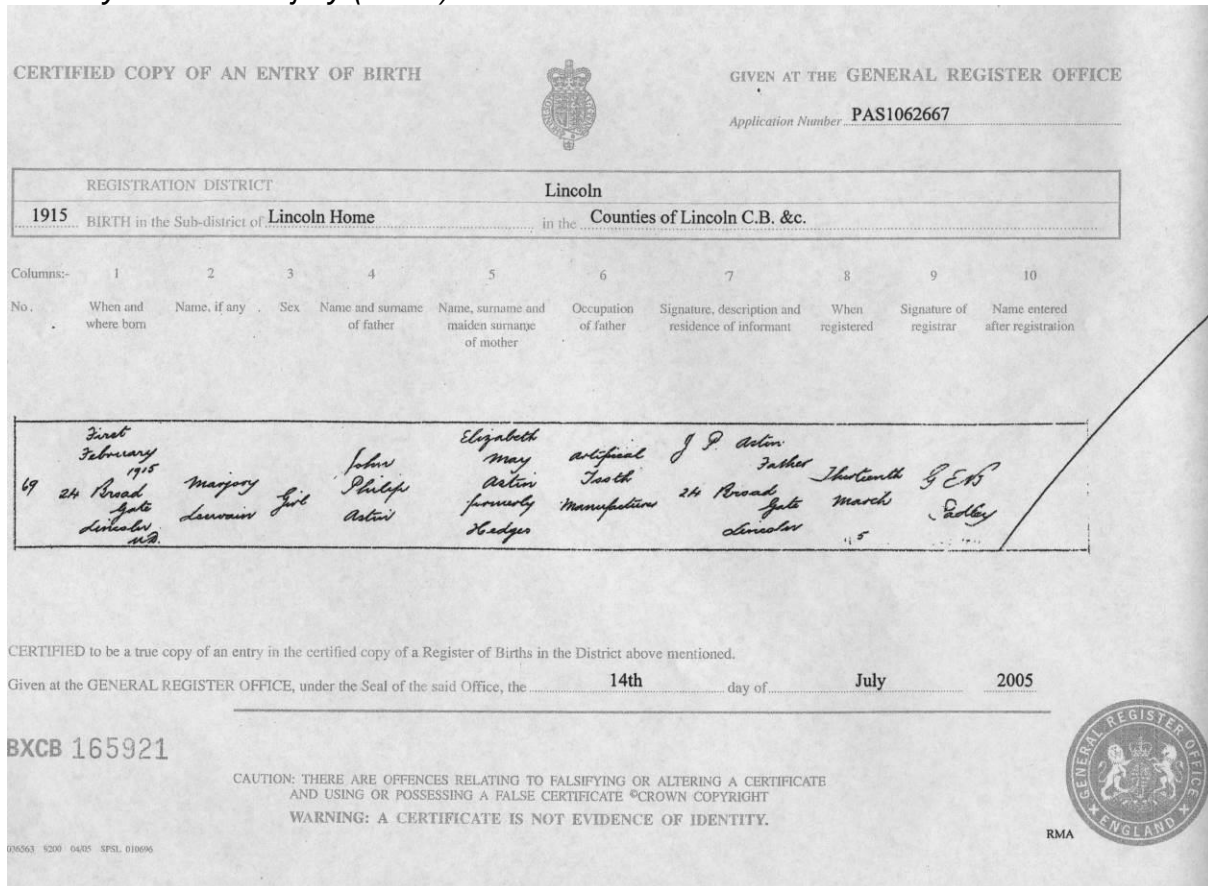 CERTIFIED COPY OF AN ENTRY OF BIRTH
GIVEN AT THE GENERAL REGISTER OFFICE
Application Number PAS1062667
REGISTRATION DISTRICT Lincoln
1915 BIRTH in the Sub-district of Lincoln Home in the Counties of Lincoln C.B. &c.
Columns:- 1 2 3 4 5 6 7 8 9 10
No. When and where born Name, if any Sex Name and surname of father Name, surname and maiden surname of mother Occupation of father Signature, description and residence of informant When registered Signature of registrar Name entered after registration
69
First
February
1915
24 Broad
Gate
Lincoln
U.D.
Marjory
Louvain
Girl
John
Philip
Astin
Elizabeth
May
Astin
formerly
Hedges
Artificial
Tooth
Manufacturer
J P Astin
Father
24 Broad
Gate
Lincoln
Thirteenth
March
5
G E B
Sadley
CERTIFIED to be a true copy of an entry in the certified copy of a Register of Births in the District above mentioned.
Given at the GENERAL REGISTER OFFICE, under the Seal of the said Office, the 14th day of July 2005
BXCB 165921
CAUTION: THERE ARE OFFENCES RELATING TO FALSIFYING OR ALTERING A CERTIFICATE
AND USING OR POSSESSING A FALSE CERTIFICATE ©CROWN COPYRIGHT
WARNING: A CERTIFICATE IS NOT EVIDENCE OF IDENTITY.
GENERAL REGISTER OFFICE
ENGLAND
RMA
036563 9200 04/05 SPSL 010696